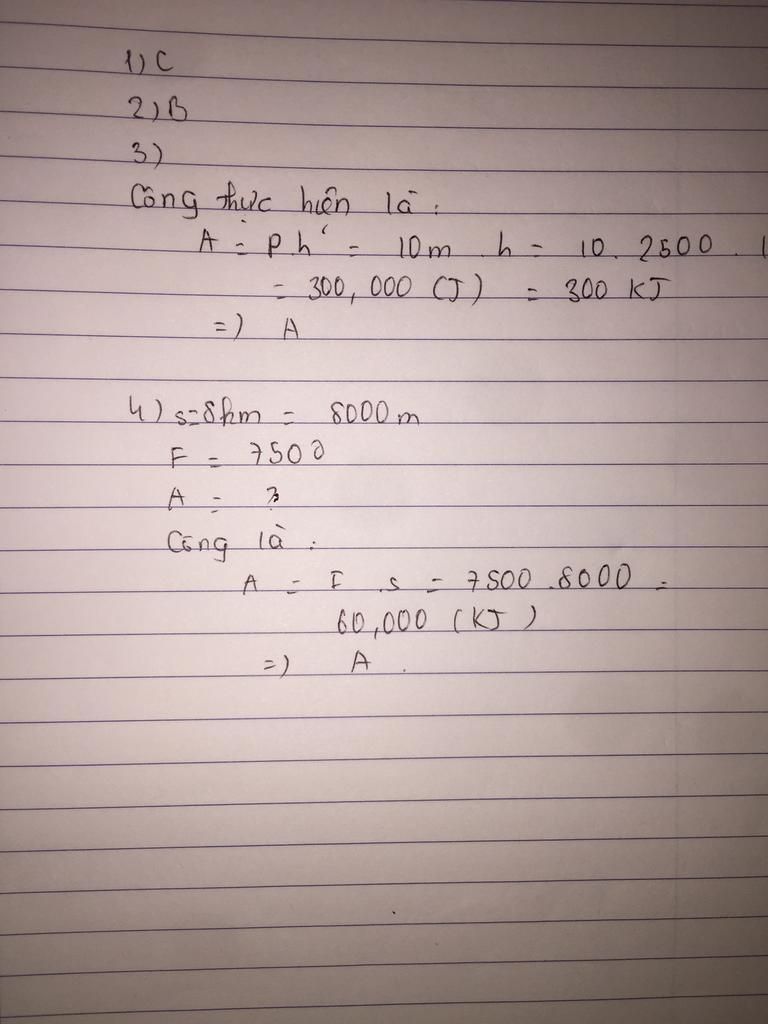 1) C
2) B
3)
Công thực hiện là :
A = P.h = 10m . h = 10. 2500 . 1
= 300,000 (J) = 300 KJ
=) A
4) s=8km = 8000 m
F = 7500
A = ?
Công là :
A = F . s = 7500 .8000 =
60,000 (KJ)
=) A .